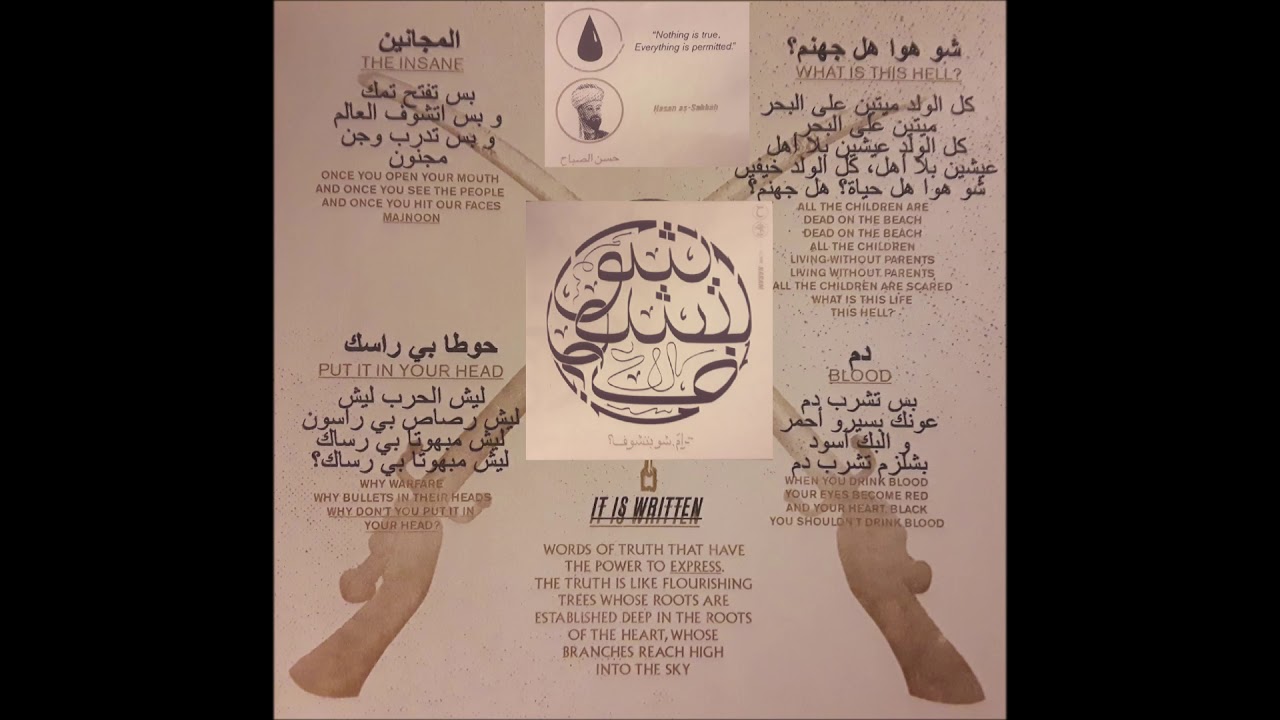 المجانين
THE INSANE
بس تفتح تمك
و بس اتشوف العالم
و بس تدرب وجن
مجنون
ONCE YOU OPEN YOUR MOUTH
AND ONCE YOU SEE THE PEOPLE
AND ONCE YOU HIT OUR FACES
MAJNOON
"Nothing is true.
Everything is permitted."
Hasan as-Sabbah
حسن الصباح
شو هوا هل جهنم؟
WHAT IS THIS HELL?
كل الولد ميتين على البحر
ميتين على البحر
كل الولد عيشين بلا أهل
عيشين بلا أهل، كل الولد خيفين
شو هوا هل حياة؟ هل جهنم؟
ALL THE CHILDREN ARE
DEAD ON THE BEACH
DEAD ON THE BEACH
ALL THE CHILDREN
LIVING WITHOUT PARENTS
LIVING WITHOUT PARENTS
ALL THE CHILDREN ARE SCARED
WHAT IS THIS LIFE
THIS HELL?
حوطا بي راسك
PUT IT IN YOUR HEAD
ليش الحرب ليش
ليش رصاص بي راسون
ليش مبهوتا بي رساك
ليش مبهوتا بي رساك؟
WHY WARFARE
WHY BULLETS IN THEIR HEADS
WHY DON'T YOU PUT IT IN
YOUR HEAD?
شو بتشوف؟
دم
BLOOD
بس تشرب دم
عونك بسيرو أحمر
و البك أسود
بشلزم تشرب دم
WHEN YOU DRINK BLOOD
YOUR EYES BECOME RED
AND YOUR HEART BLACK
YOU SHOULDN'T DRINK BLOOD
IT IS WRITTEN
WORDS OF TRUTH THAT HAVE
THE POWER TO EXPRESS.
THE TRUTH IS LIKE FLOURISHING
TREES WHOSE ROOTS ARE
ESTABLISHED DEEP IN THE ROOTS
OF THE HEART, WHOSE
BRANCHES REACH HIGH
INTO THE SKY